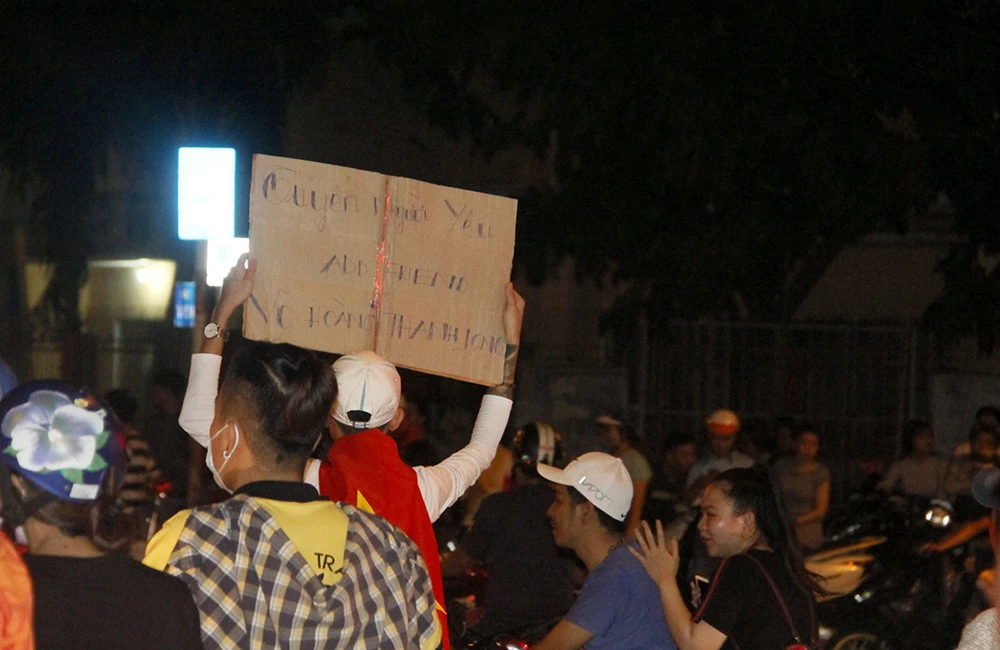 Tuyển Người Yêu
ADD FRIEND
VÕ HOÀNG THANH LONG
TRA